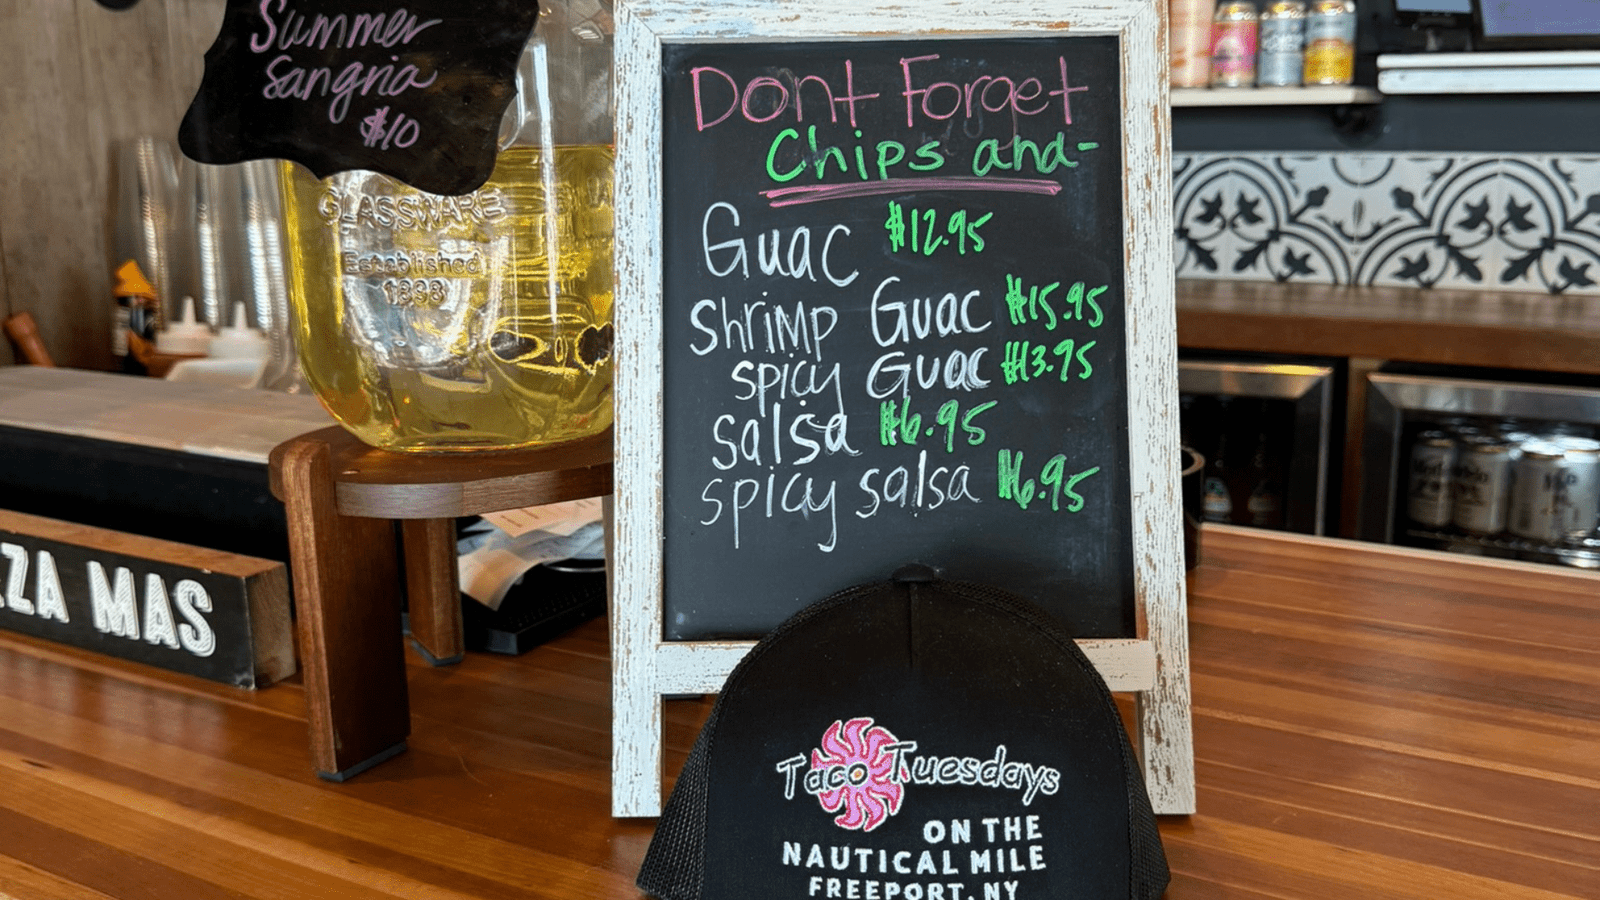 Summer
Sangria
$10
GLASSWARE
Established
1898
Dont Forget
Chips and-
Guac $12.95
Shrimp Guac $15.95
Spicy Guac $13.95
Salsa $6.95
Spicy salsa $6.95
ZA MAS
Taco Tuesdays
ON THE
NAUTICAL MILE
FREEPORT, NY